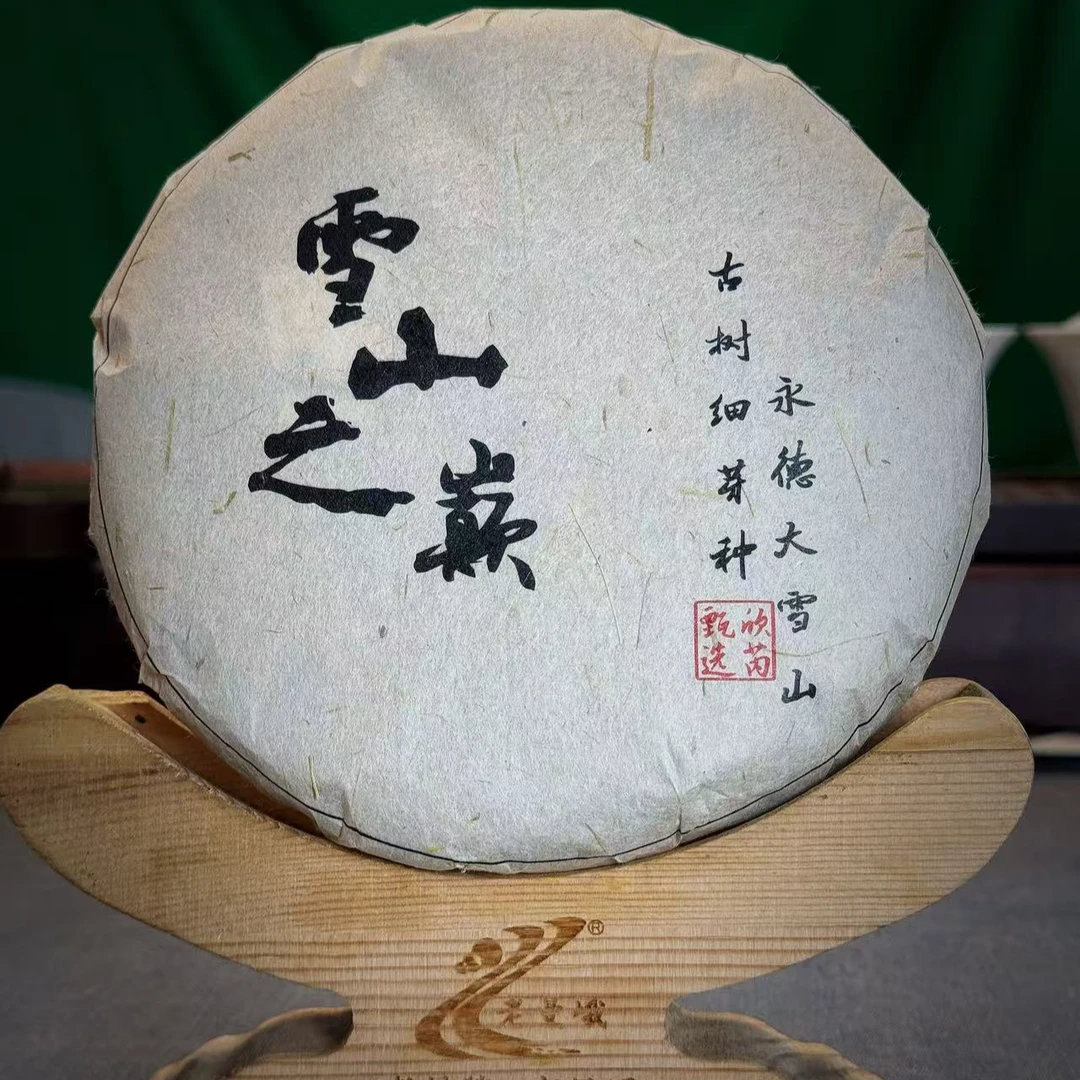 雪山之巅
永德大雪山
古树细芽种
欣芮
甄选
®
老曼峨